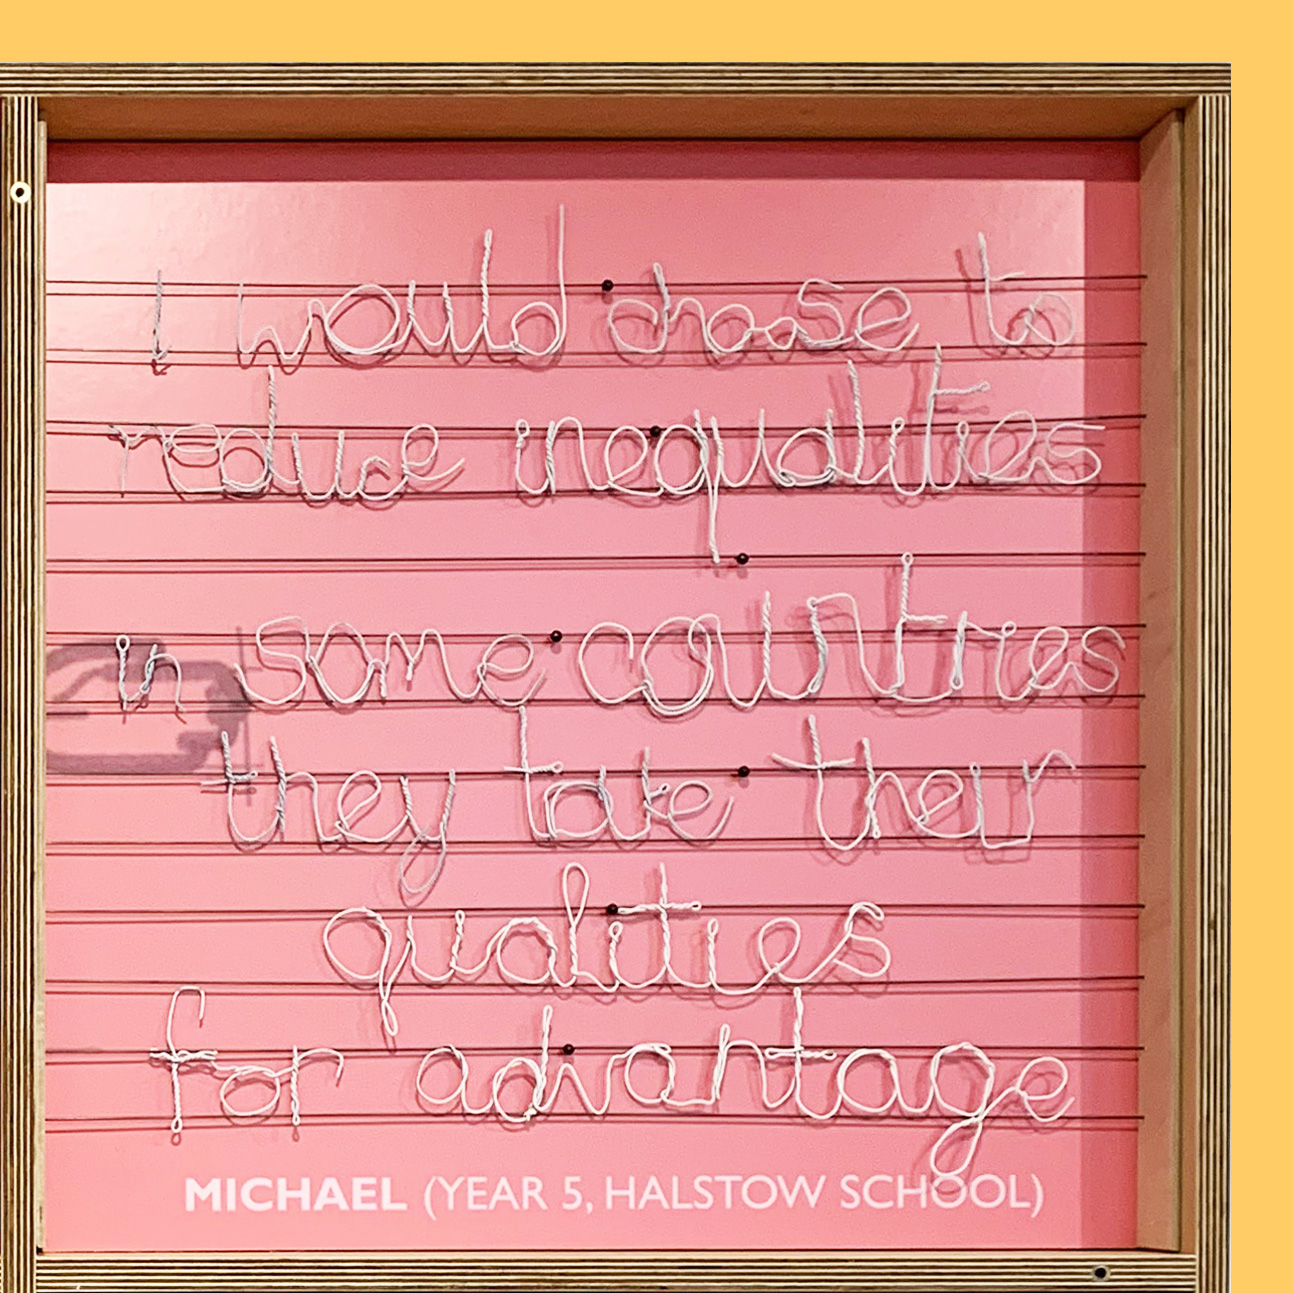 I would chose to
reduce inequalities
in some countries
they take their
qualities
for advantage
MICHAEL (YEAR 5, HALSTOW SCHOOL)